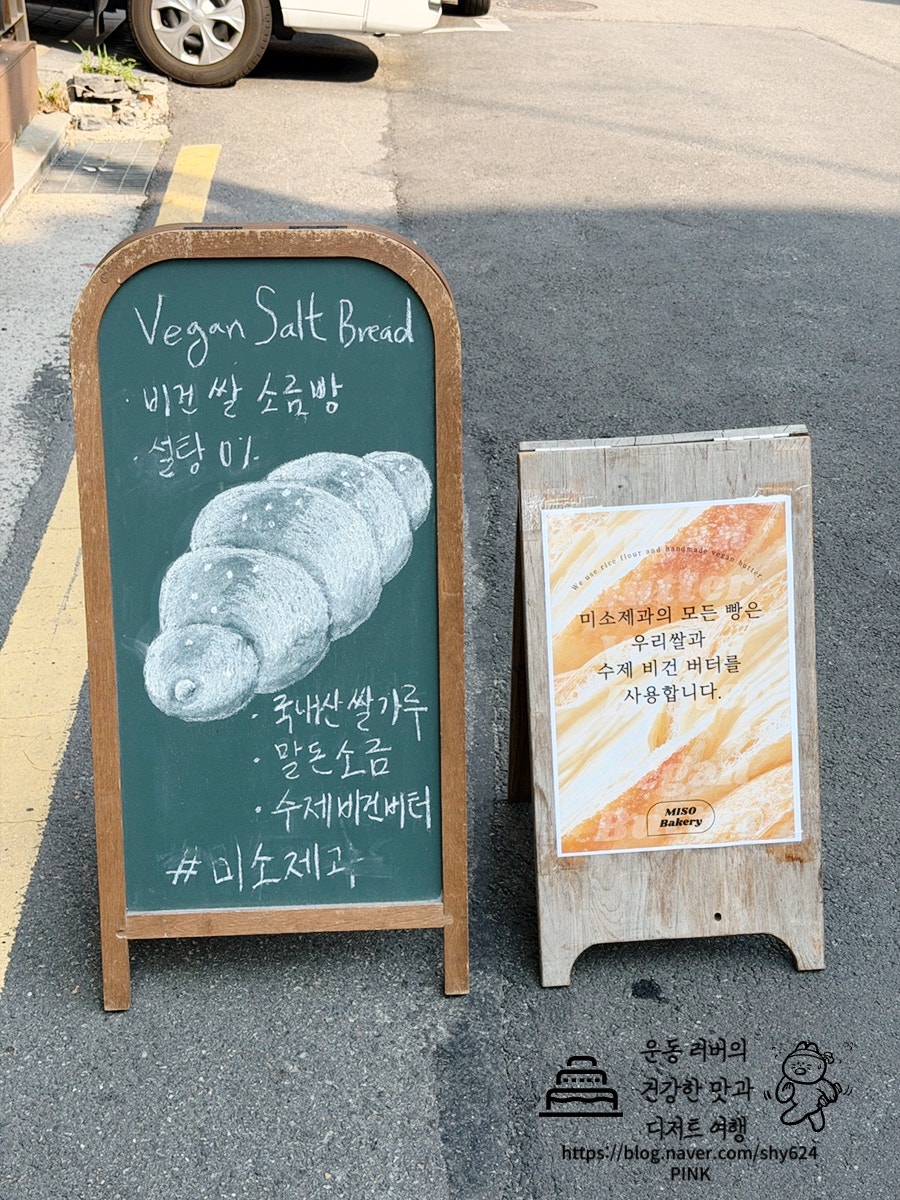 Vegan Salt Bread
· 비건 쌀 소금빵
· 설탕 0%
· 국내산 쌀가루
· 말돈소금
· 수제비건버터
#미소제과
We use rice flour and handmade vegan butter
미소제과의 모든 빵은
우리쌀과
수제 비건 버터를
사용합니다.
MISO
Bakery
운동 러버의
건강한 맛과
디저트 여행
https://blog.naver.com/shy624
PINK